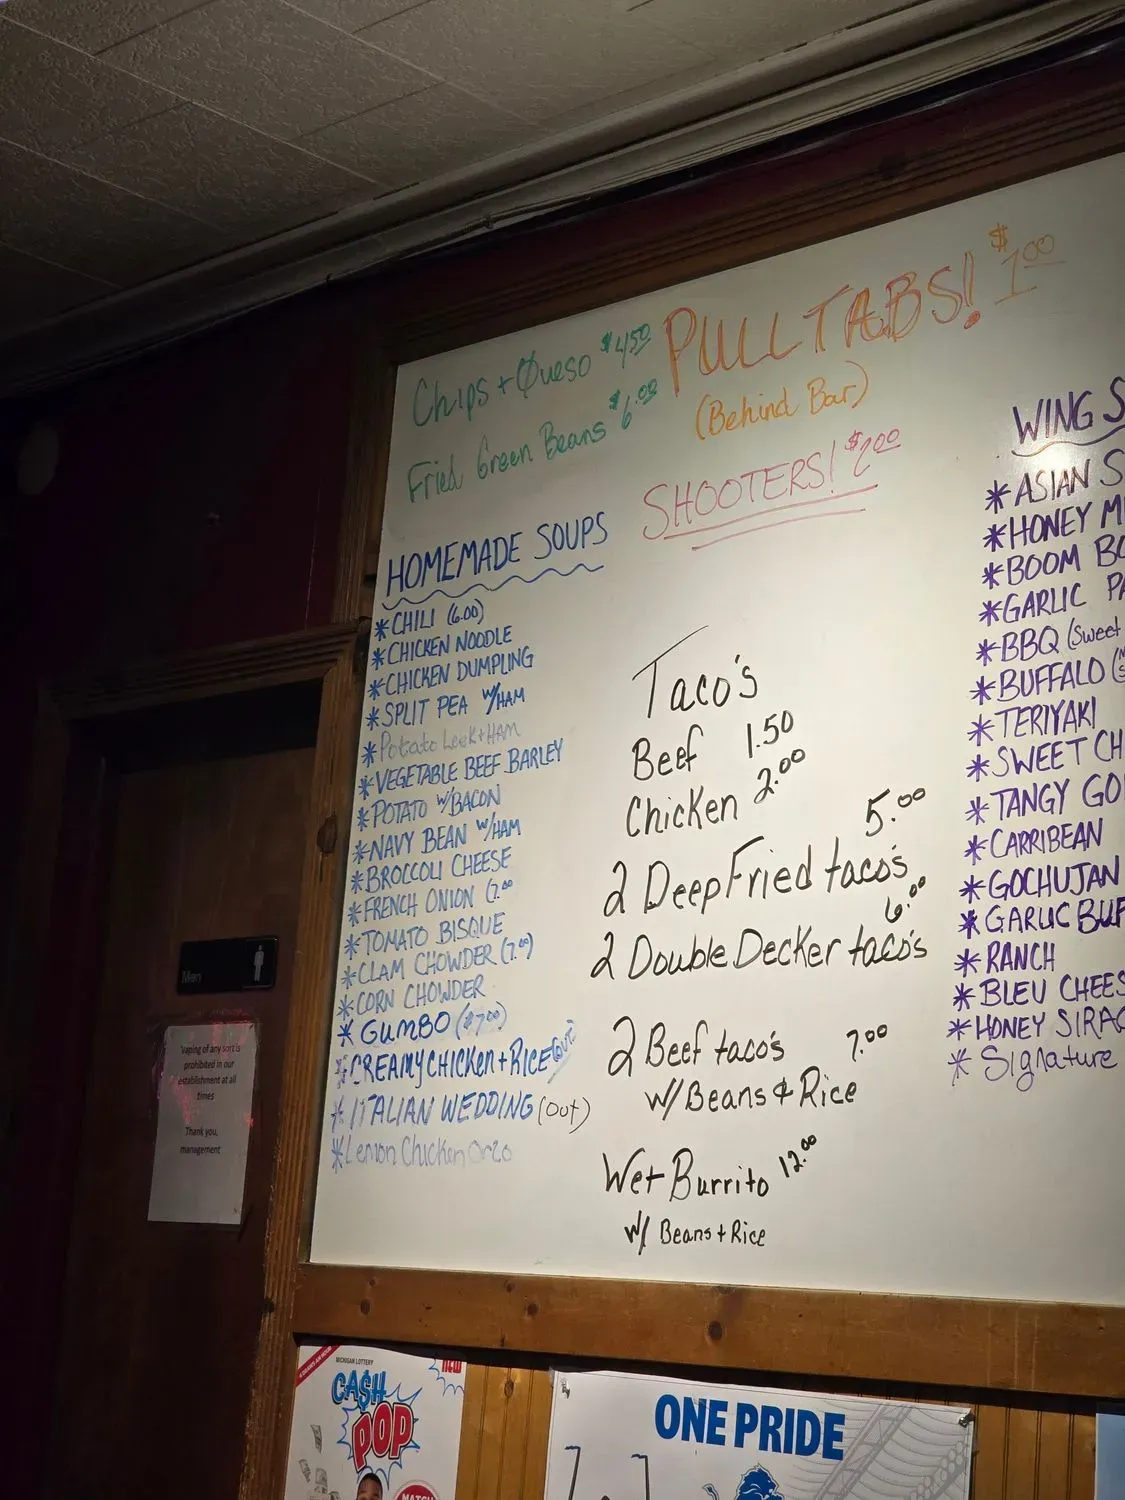 Chips + Queso $4.50
Fried Green Beans $6.00
PULLTABS! $1.00
(Behind Bar)
SHOOTERS! $2.00
HOMEMADE SOUPS
*CHILI (6.00)
*CHICKEN NOODLE
*CHICKEN DUMPLING
*SPLIT PEA W/HAM
*Potato Leek+HAM
*VEGETABLE BEEF BARLEY
*POTATO W/BACON
*NAVY BEAN W/HAM
*BROCCOLI CHEESE
*FRENCH ONION (7.00
*TOMATO BISQUE
*CLAM CHOWDER (7.00)
*CORN CHOWDER
*GUMBO ($7.00)
*CREAMY CHICKEN+RICE (OUT)
*ITALIAN WEDDING (OUT)
*Lemon Chicken Orzo
Taco's
Beef 1.50
Chicken 2.00
2 Deep Fried taco's 5.00
2 Double Decker taco's 6.00
2 Beef taco's 7.00
W/Beans & Rice
Wet Burrito 12.00
W/ Beans + Rice
WING S
*ASIAN S
*HONEY M
*BOOM BO
*GARLIC PA
*BBQ (Sweet
*BUFFALO (
*TERIYAKI
*SWEET CH
*TANGY GO
*CARRIBEAN
*GOCHUJAN
*GARLIC BUF
*RANCH
*BLEU CHEES
*HONEY SIRAC
*Signature
Men
Vaping of any sort is
prohibited in our
establishment at all
times
Thank you,
management
MICHIGAN LOTTERY
NEW
CA$H
POP
MATCH
ONE PRIDE